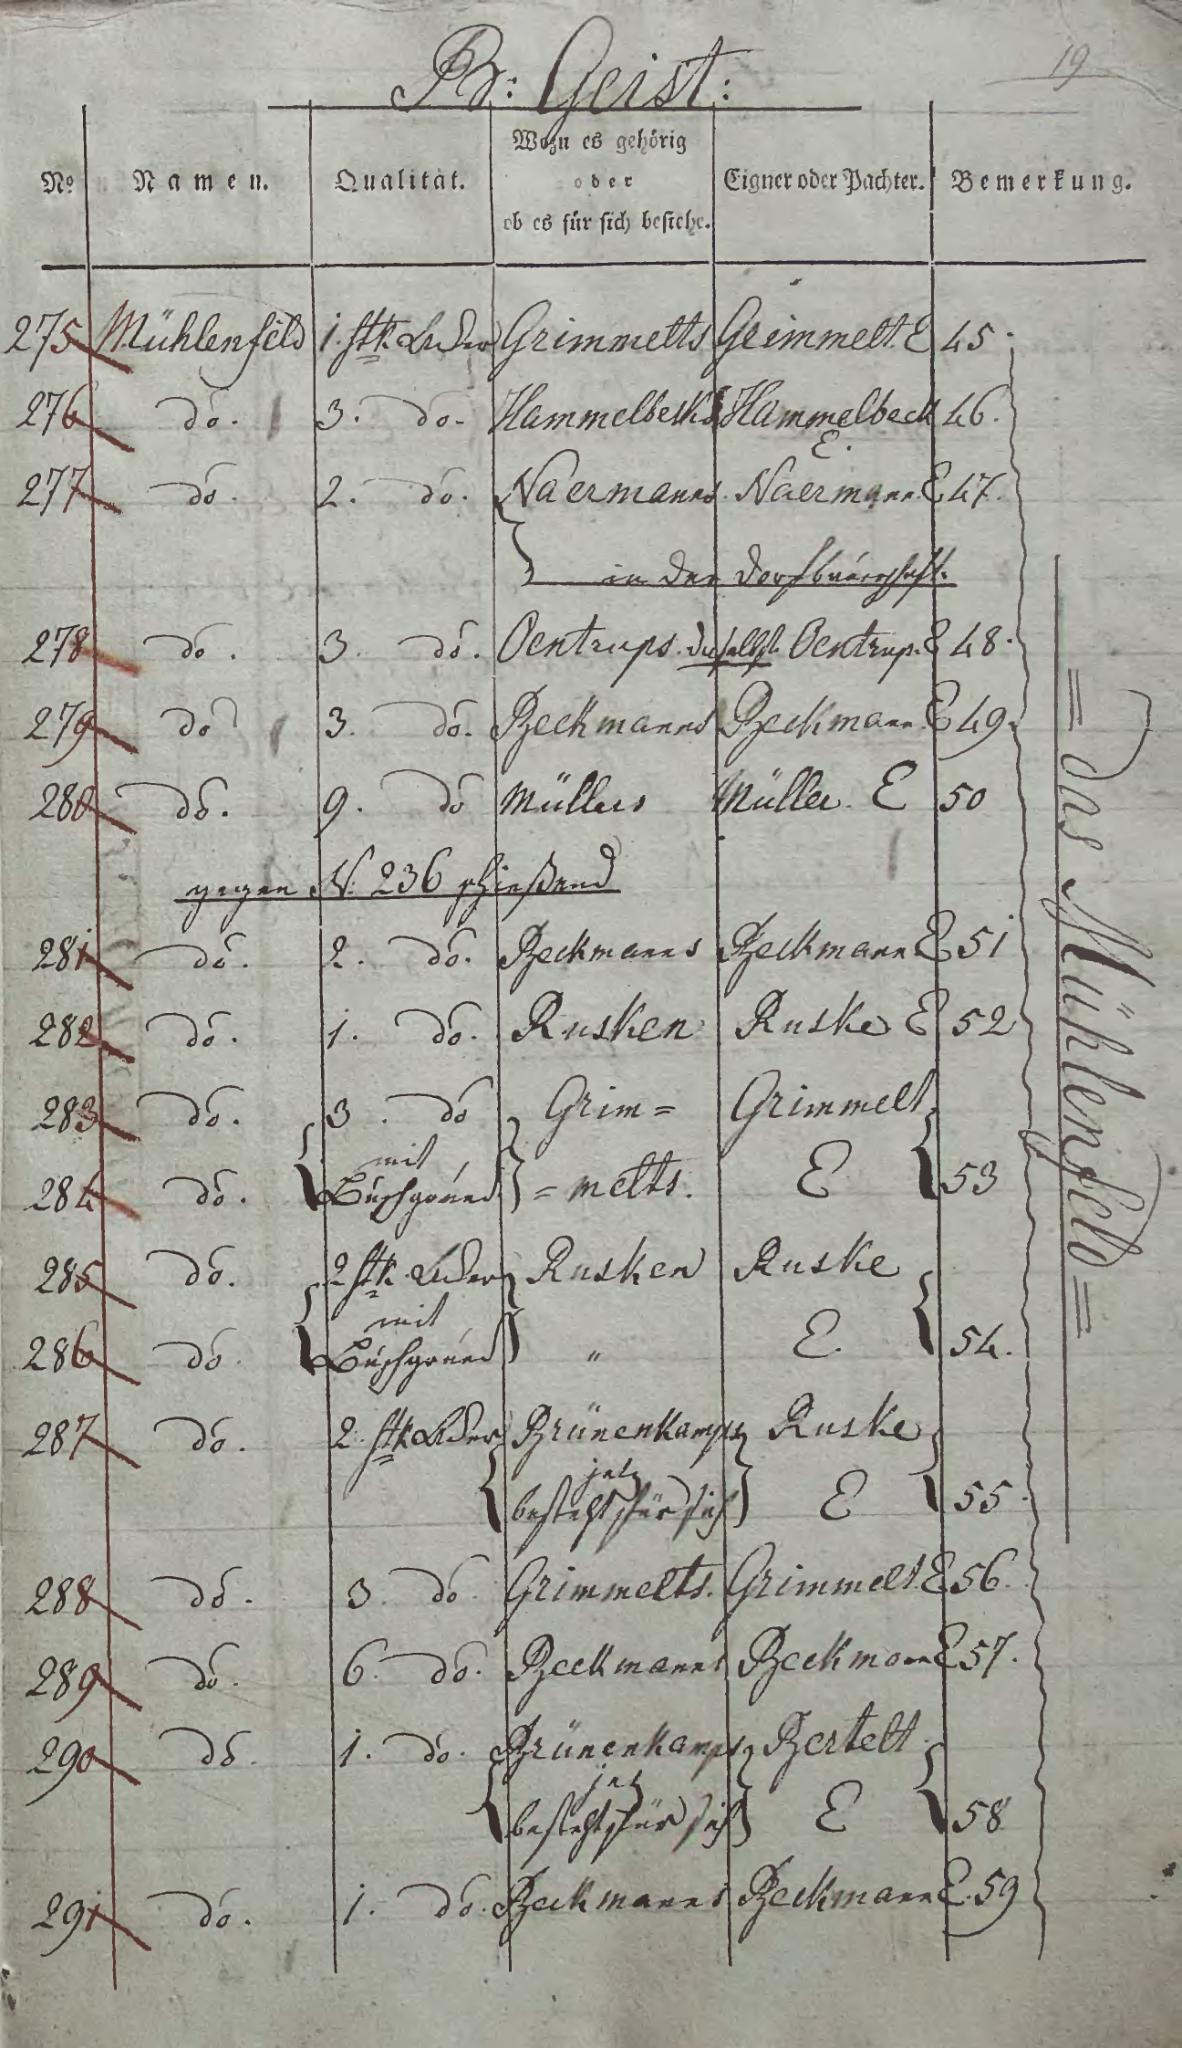 19
B: Geist:
No Namen. Qualität. Wozu es gehörig oder ob es für sich bestehe. Eigner oder Pachter. Bemerkung.
275 Mühlenfeld 1. stk. Länder Grimmelts Grimmelt. E 45.
276 do. 3. do. Hammelbecks Hammelbeck E. 46.
277 do. 2. do. Naermanns. Naermann. E 47.
in der Dorfbauerschaft.
278 do. 3. do. Oentrups. daselbst Oentrup. E 48.
279 do 3. do. Beckmanns Beckmann. E 49.
280 do. 9. do Müllers Müller. E 50
gegen N: 236 schießend
281 do. 2. do. Beckmanns Beckmann E 51
282 do. 1. do. Rusken Ruske E 52
283 do. 3. do Grim= Grimmelt
284 do. mit Buschgrund =melts. E 53
285 do. 2 stk. Länder Rusken Ruske
286 do. mit Buschgrund " E. 54.
287 do. 2. stk. Länder Brünenkamps Ruske
jetz besteht für sich E 55.
288 do. 3. do. Grimmelts. Grimmelt E 56.
289 do. 6. do. Beckmanns Beckmann E 57.
290 do. 1. do. Brünenkamps Bertelt.
jetz besteht für sich E 58
291 do. 1. do. Beckmanns Beckmann E. 59
= das Mühlenfeld =